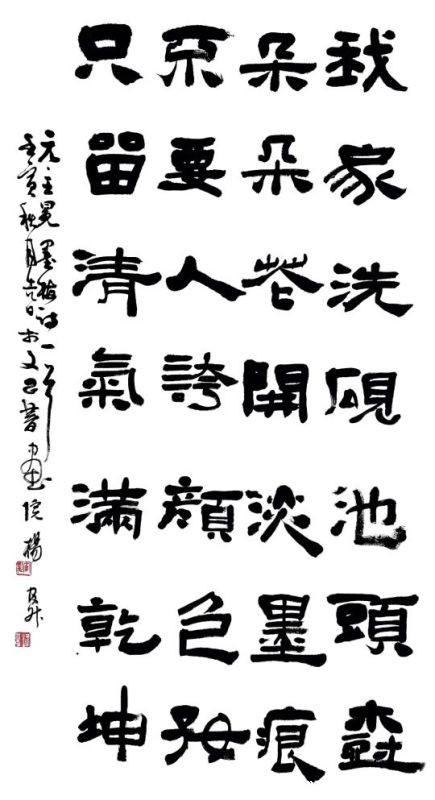 我家洗硯池頭樹
朵朵花開淡墨痕
不要人誇顏色好
只留清氣滿乾坤
元王冕墨梅詩一首
壬寅秋月吉日於文書畫院楊